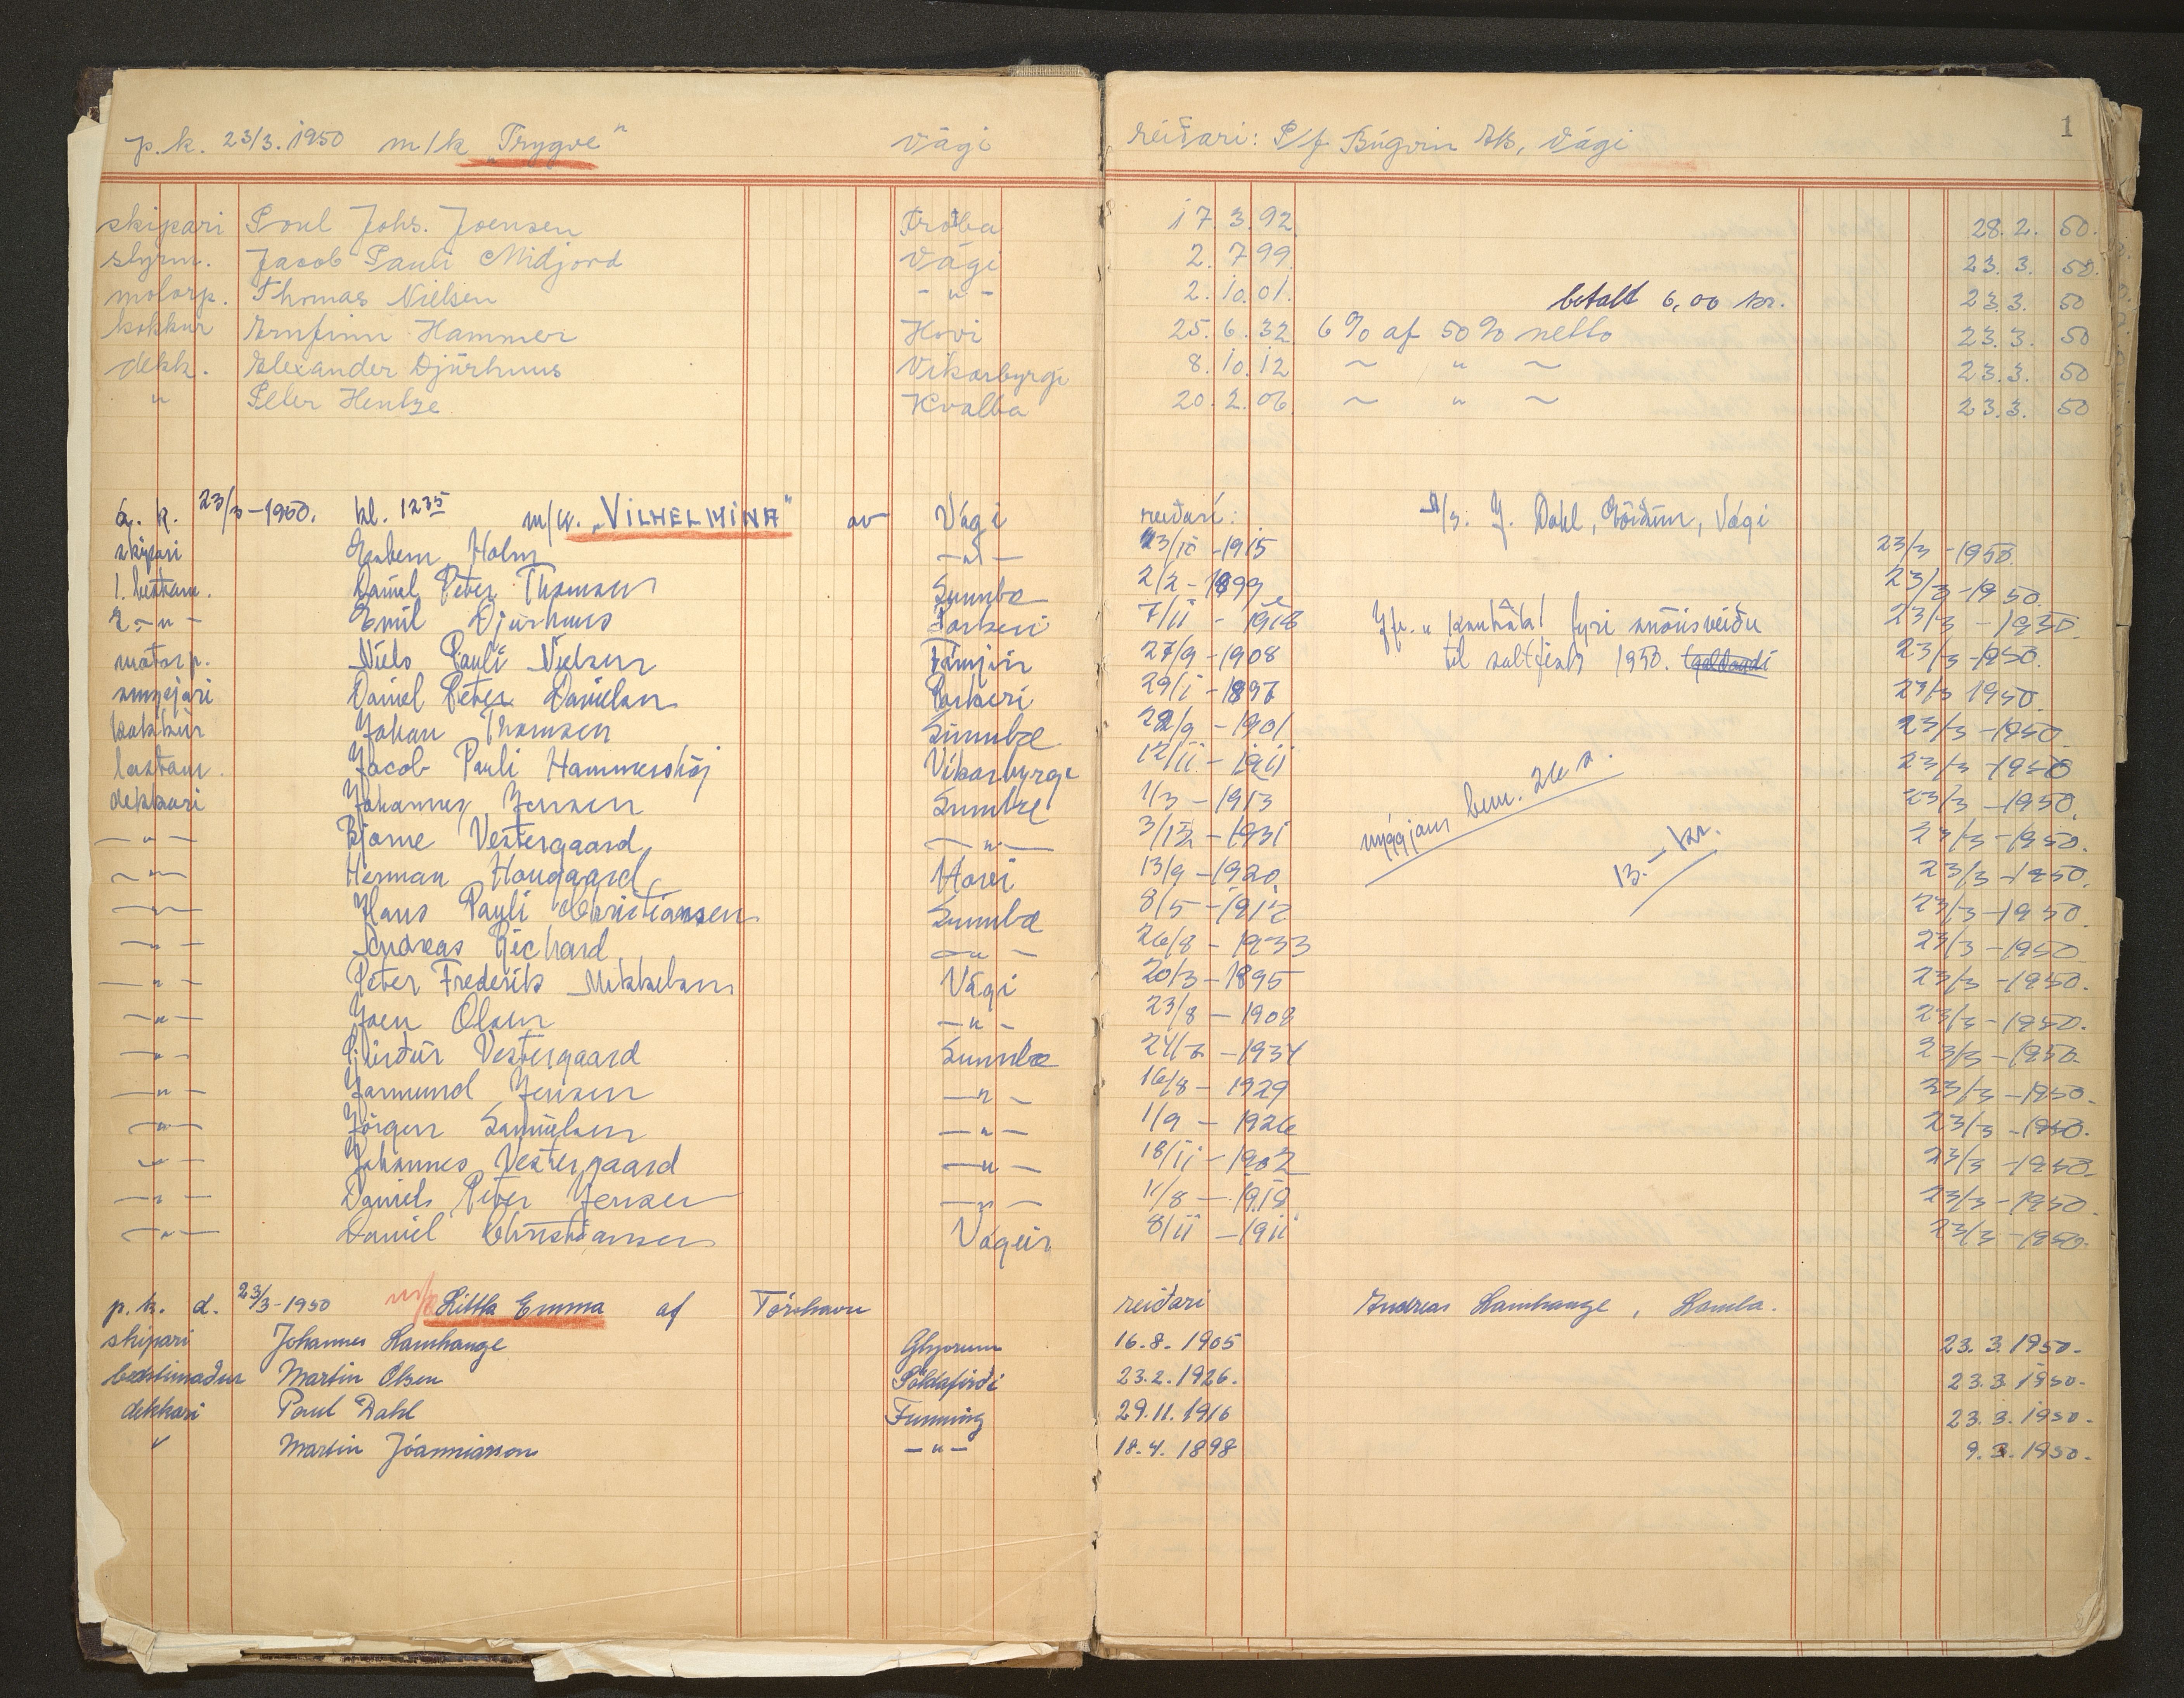 1
p.k. 23/3. 1950 m/k „Trygve" Vági reiðari: P/f Búgvin Eks, Vági
skipari Poul Johs. Joensen Froðba 17.3.92 28.2. 50.
styrm. Jacob Pauli Midjord Vági 2.7 99 23.3. 50.
motorp. Thomas Nielsen -"- 2.10.01. betalt 6,00 kr. 23.3. 50
kokkur Arnfinn Hammer Hovi 25.6.32 6% af 50% netto 23.3. 50
dekk. Alexander Djurhuus Vikarbyrgi 8.10.12 ~ " ~ 23.3. 50
" Peter Hentze Hvalba 20.2.06 ~ " ~ 23.3. 50
á. k. 23/3-1950. kl. 1235 m/k. „VILHELMINA" av Vági reiðari: A/s. J. Dahl, Vági
skipari Holm -"- 23/10-1915 23/3-1950.
1. bestam. Daniel Peter Thomsen Sumba 2/2-1899 23/3-1950.
2-"- Emil Djurhuus Porkeri 7/11-1916 Jfr. fyri 23/3-1950.
motorp. Niels Pauli Nielsen Fámjin 27/9-1908 til saltfisk 1950. 23/3-1950.
Daniel Peter Danielsen Porkeri 29/1-1897 23/3 1950.
kokkur Johan Thomsen Sumba 28/9-1901 23/3-1950.
lastam. Jacob Pauli Hammershöj Vikarbyrgi 12/11-1911 23/3-1950
dekkari Johannes Jensen Sumba 1/3-1913 23/3-1950.
-"- Bjarne Vestergaard -"- 3/12-1931 23/3-1950.
-"- Herman Hougaard Hovi 13/9-1920 13.- kr. 23/3-1950.
-"- Hans Pauli Christiansen Sumba 8/5-1912 23/3-1950
-"- Andreas Richard -"- 26/8-1933 23/3-1950
-"- Peter Frederik Mikkelsen Vági 20/3-1895 23/3-1950.
-"- Joen Olsen -"- 23/8-1908 23/3-1950.
-"- Vestergaard Sumba 24/7-1934 23/3-1950.
-"- Jarmund Jensen -"- 16/8-1929 23/3-1950.
-"- Jörgen Samuelsen -"- 1/9-1926 23/3-1950.
-"- Johannes Vestergaard -"- 18/11-1902 23/3-1950.
-"- Daniel Peter Jensen -"- 11/8-1918 23/3-1950.
-"- Daniel Christiansen 8/11-1911 23/3-1950.
p.k. d. 23/3-1950 m/k Littla Emma af Tórshavn reiðari Andreas Lamhauge, Lamba.
skipari Johannes Lamhauge Glyvrum 16.8.1905 23.3.1950.-
bestimaður Martin Olsen Söldafirði 23.2.1926. 23.3.1950.-
dekkari Poul Dahl Funning 29.11.1916 23.3.1950.-
" Martin Jóannisson -"- 18.4.1898 9.3.1950.-